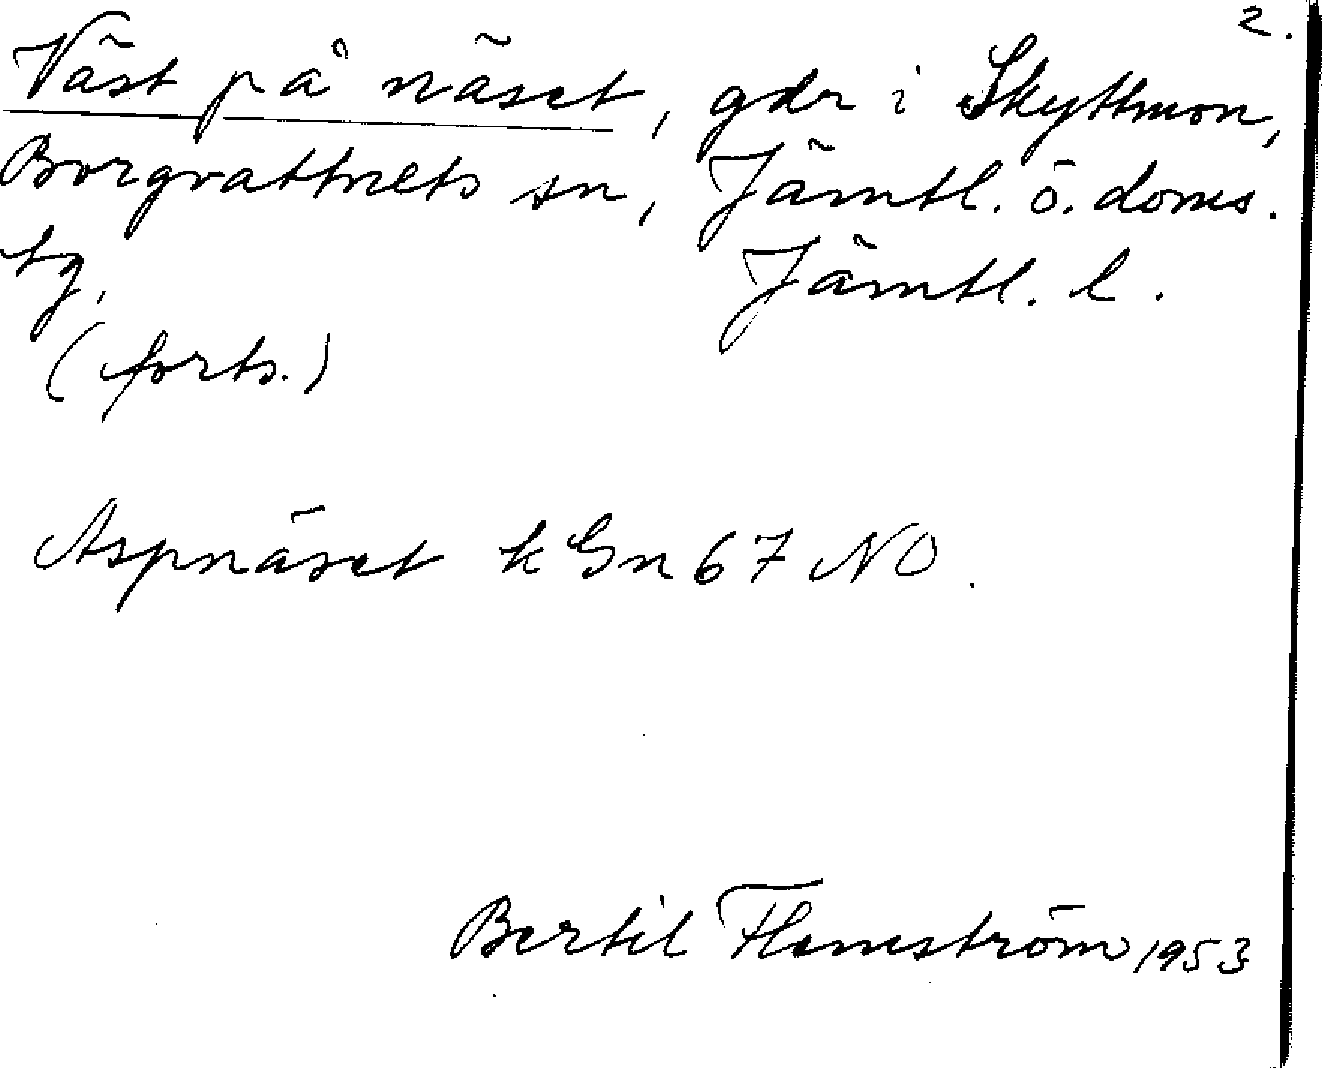 2.
Väst på näset, gdr i Skyttmon,
Borgvattnets sn, Jämtl. ö. doms.
tg, Jämtl. l.
(forts.)
Aspnäset k Gn 67 NO.
Bertil Flemström 1953